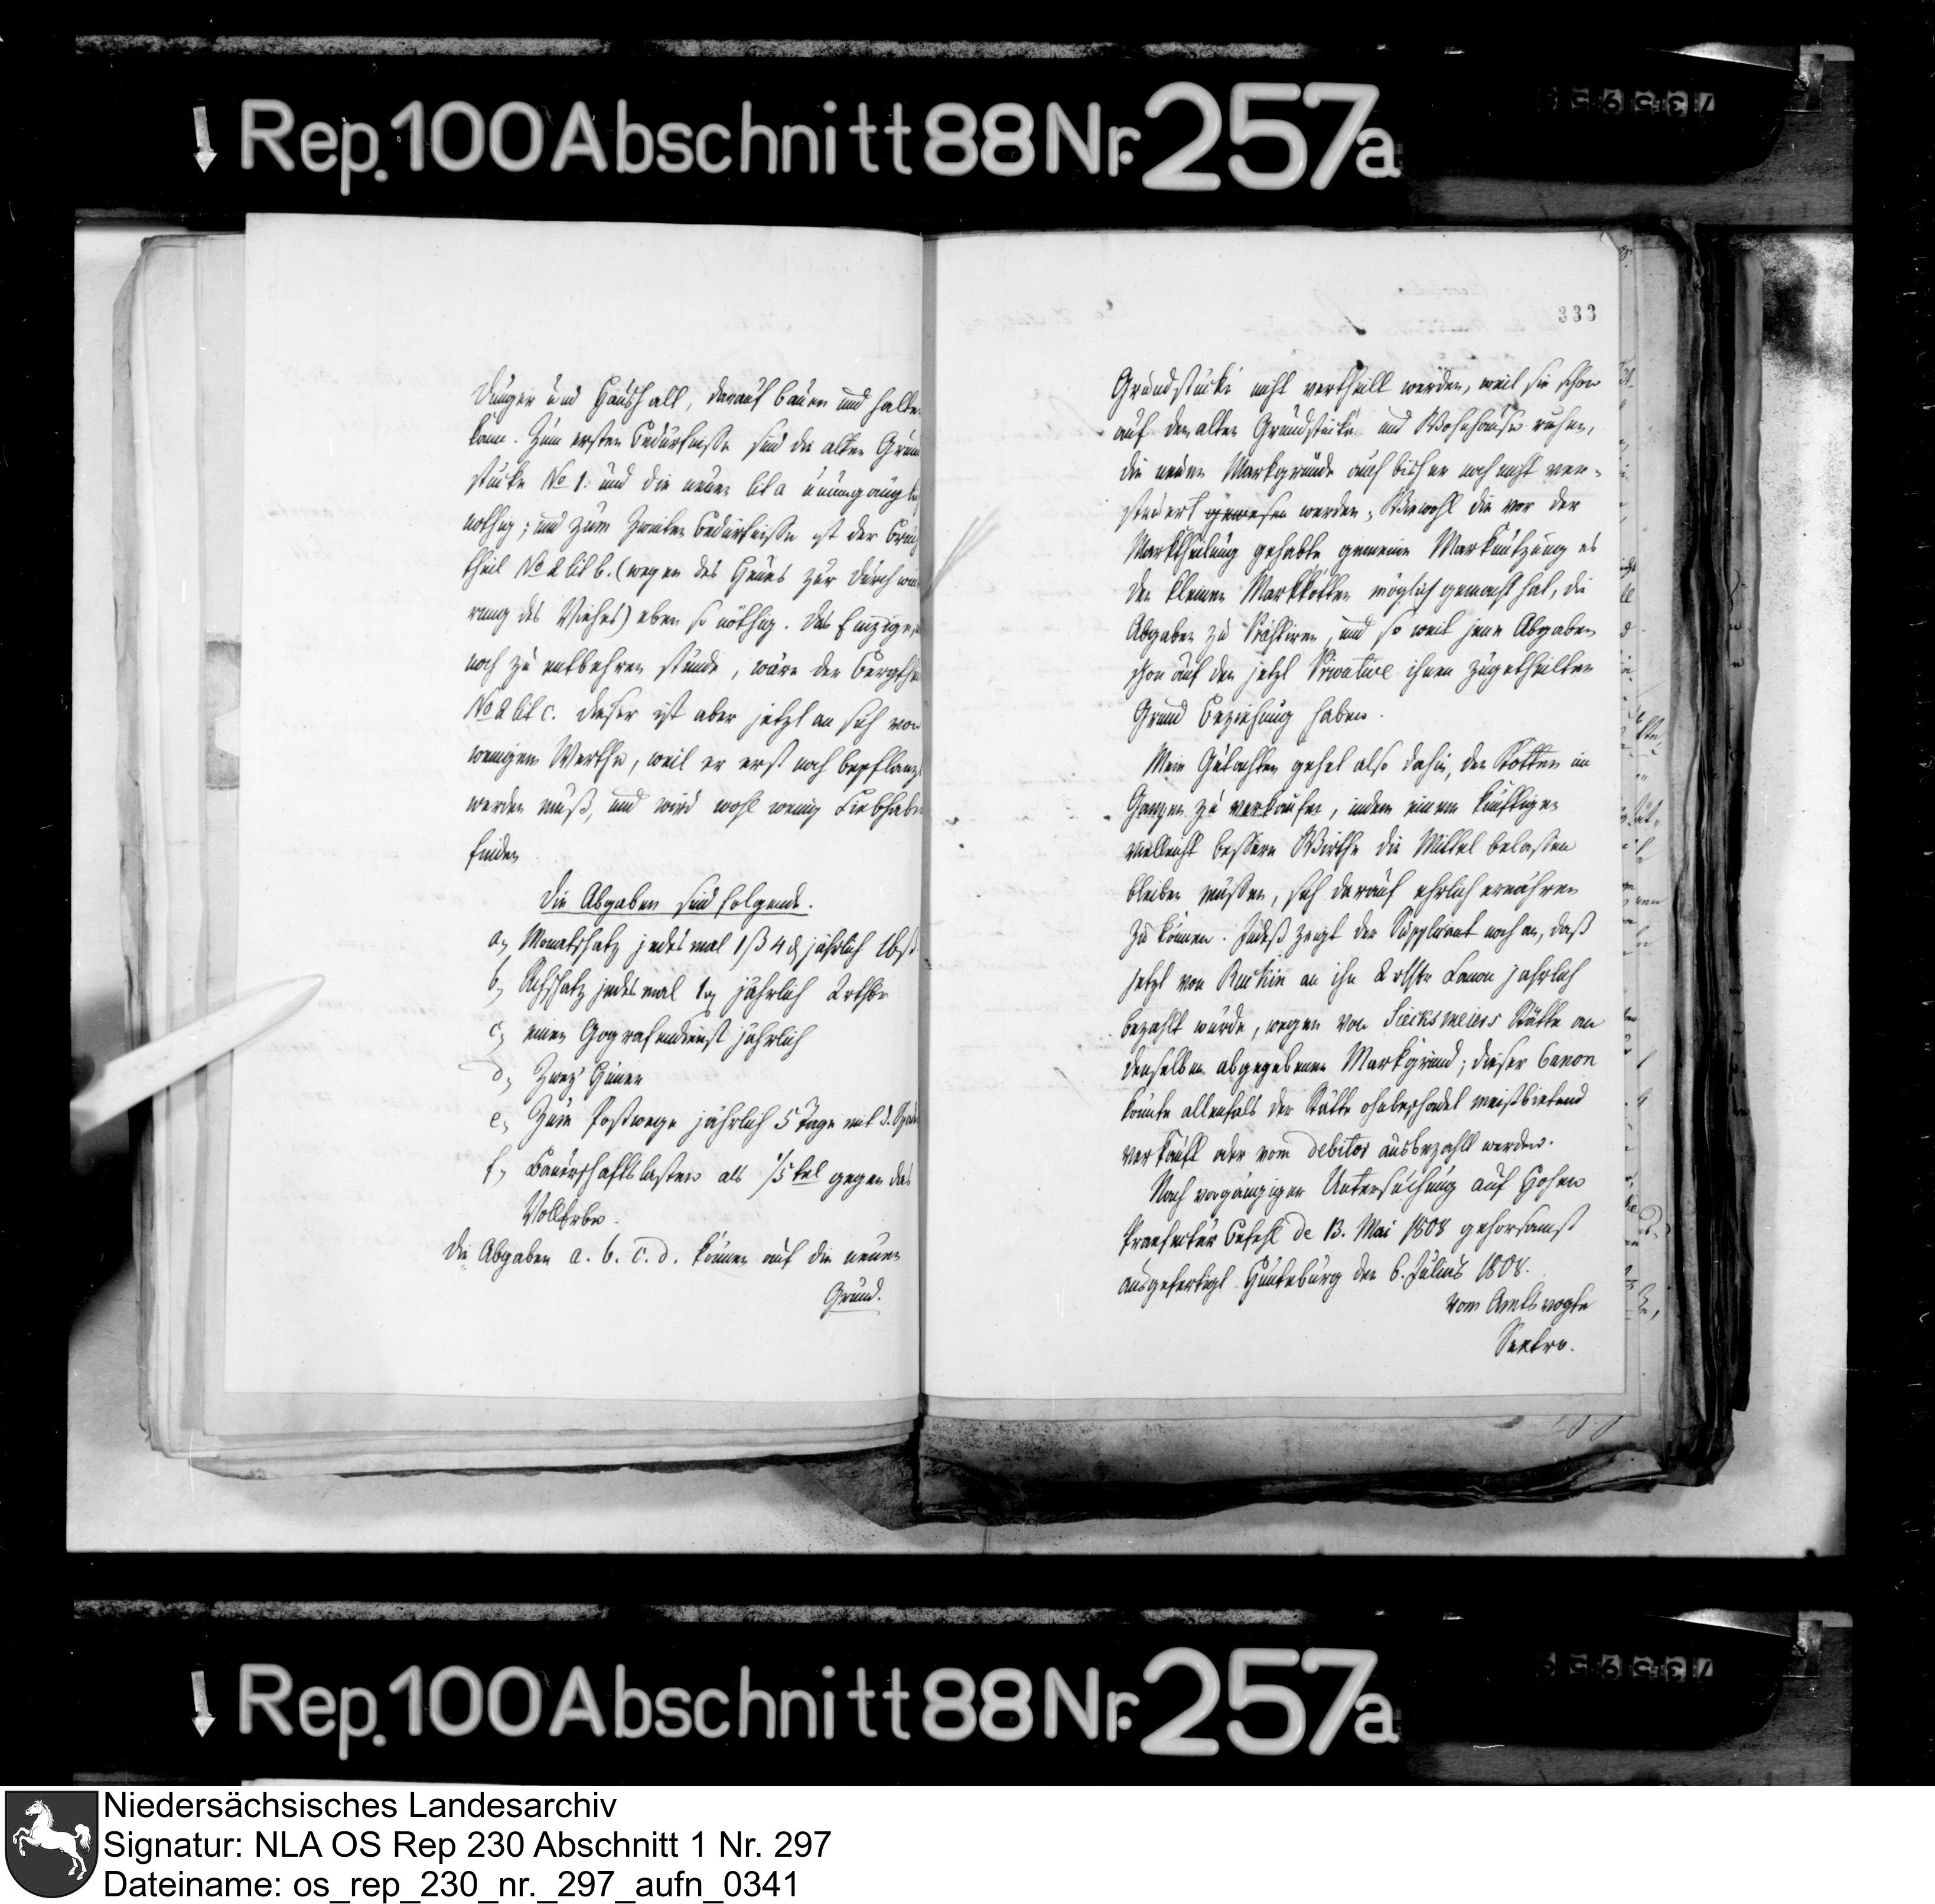 Rep. 100 Abschnitt 88 Nr. 257a
Dünger und Haushalt, darauf bauen und halten
kann. Zum ersten Bedürfniße sind die alten Grund
stücke No 1. und die neuen lit a unumgänglich
nöthig; und zum zweiten Bedürfniße ist der Bruch
theil No 2 lit b. (wegen des Heues zur Durchwin
rung des Viehes) eben so nöthig. Das Einzige,
noch zu entbehren stünde, wäre der Bergtheil
No 2 lit c. dieser ist aber jetzt an sich von
wenigem Werthe, weil er erst noch bepflanzt
werden muß, und wird wohl wenig Liebhaber
finden
Die Abgaben sind folgende.
a, Monatschatz jedes mal 1ß 4 d jährlich 16ß
b, jedes mal jährlich 2 rthlr
c, einen Gografendienst jährlich
d, Zwey Hüner
e, Zum Postwege jährlich 5 Tage mit d. Spaden
f, Bauerschaftslasten als 1/5 tel gegen das
Vollerbe.
Die Abgaben a. b. c. d. können auf die neuen
Grund.
333
Grundstücke nicht vertheilt werden, weil sie schon
auf den alten Grundstücke und Wohnhause ruhen,
die neuen Markgründe auch bisher noch nicht ver-
steuert gewesen werden; Wiewohl die vor der
Marktheilung gehabte gemeine Marknutzung es
den kleinen Markkötter möglich gemacht hat, die
Abgaben zu prästiren, und so weit jene Abgaben
schon auf den jetzt Privative ihnen zugetheilten
Grund Beziehung haben.
Mein Gutachten gehet also dahin, den Kotten im
Ganzen zu verkaufen, indem einem künftigen
vielleicht bessern Wirthe die Mittel belaßen
bleiben müßen, sich darauf ehrlich ernähren
zu können. Indeß zeigt der Supplicant noch an, daß
jetzt von an ihn 2 rthlr Canon jährlich
bezahlt würde, wegen von Sieksmeiers Stätte an
denselben abgegebenen Markgrund; dieser Canon
könnte allenfals der Stätte ohnbeschadet meistbietend
verkauft oder vom debitor ausbezahlt werden.
Nach vorgängiger Untersuchung auf Hohen
Praefectur Befehl de 13. Mai 1808 gehorsamst
ausgefertigt Hunteburg den 6. Julius 1808.
vom Amtsvogte
Rep. 100 Abschnitt 88 Nr. 257a
Niedersächsisches Landesarchiv
Signatur: NLA OS Rep 230 Abschnitt 1 Nr. 297
Dateiname: os_rep_230_nr._297_aufn_0341